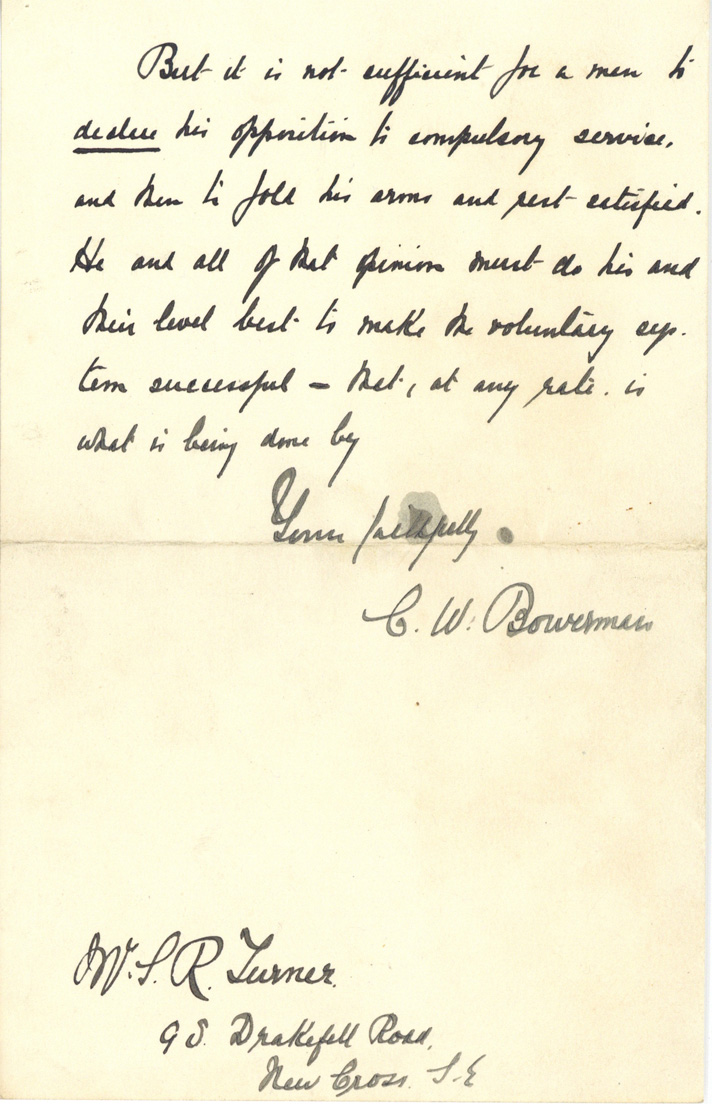 But it is not sufficient for a man to
declare his opposition to compulsory service,
and then to fold his arms and rest satisfied.
He and all of that opinion must do his and
their level best to make the voluntary sys-
tem successful – that, at any rate, is
what is being done by
Yours faithfully.
C. W. Bowerman
S. R. Turner.
Drakefell Road,
New Cross. S.E